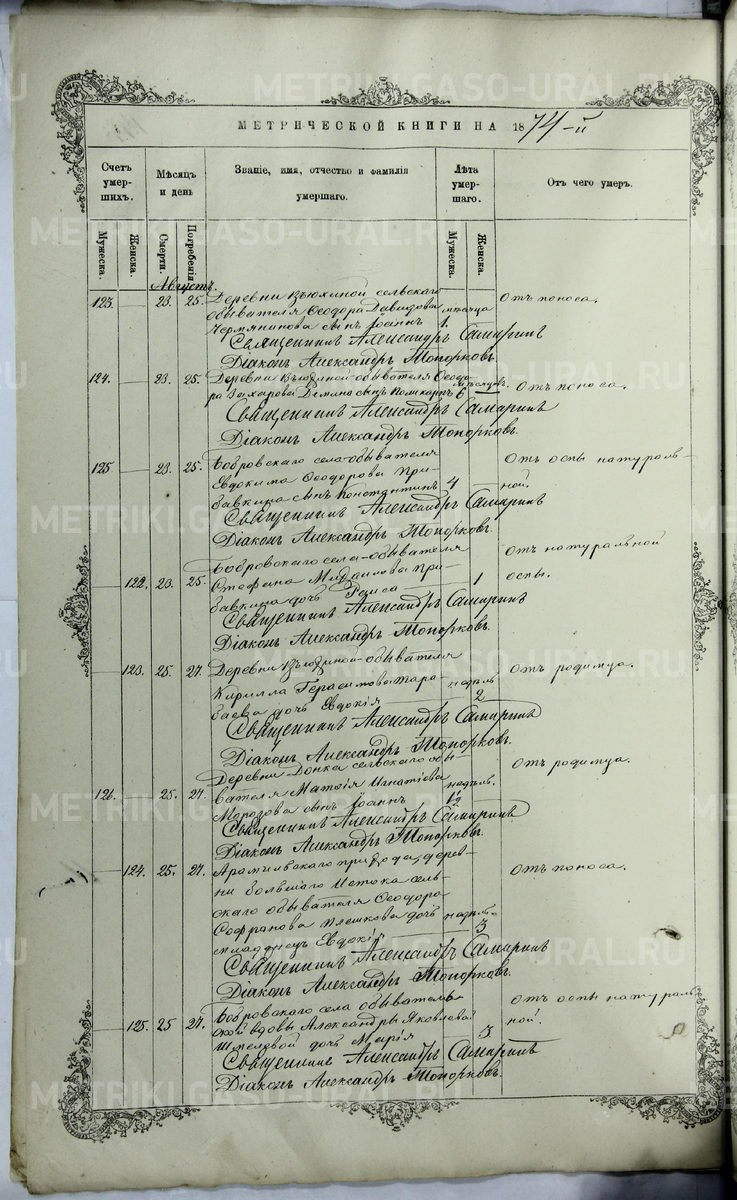 МЕТРИЧЕСКОЙ КНИГИ НА 1874-й
Счетъ умершихъ.
Мѣсяцъ и день
Званіе, имя, отчество и фамилія умершаго.
Лѣта умершаго.
Отъ чего умеръ.
Мужеска. Женска. Смерти. Погребенія. Мужеска. Женска.
Августъ.
123. 23. 25. Деревни сельскаго
обывателя Ѳеодора Давидова мѣсяца Отъ поноса.
Чермянинова сынъ Іоаннъ 1.
Священникъ Александръ Самаринъ
Діаконъ Александръ Топорковъ.
124. 23. 25. Деревни обывателя Ѳеодо-
ра Захарова Демина сынъ Поликарпъ 6 Отъ поноса.
Священникъ Александръ Самаринъ
Діаконъ Александръ Топорковъ.
125 23. 25. Бобровскаго села обывателя Отъ оспы натураль-
Евдокима Ѳеодорова При- ной.
бавкина сынъ Константинъ 4
Священникъ Александръ Самаринъ
Діаконъ Александръ Топорковъ.
122. 23. 25. Бобровскаго села обывателя Отъ натуральной
Стефана Михаилова При- оспы.
бавкина дочь Раиса 1
Священникъ Александръ Самаринъ
Діаконъ Александръ Топорковъ.
123. 25. 27. Деревни обывателя Отъ родимца.
Кирилла Герасимова Тара- недѣль
баева дочь Евдокія 2
Священникъ Александръ Самаринъ
Діаконъ Александръ Топорковъ.
126. 25. 27. Деревни сельскаго обы- Отъ родимца.
вателя Матѳія Игнатіева недѣль.
Морозова сынъ Іоаннъ 1½
Священникъ Александръ Самаринъ
Діаконъ Александръ Топорковъ.
124. 25. 27. Арамильскаго прихода, дерев- Отъ поноса.
ни большаго Истока сель-
скаго обывателя Ѳеодора
Софранова Плешкова дочь недѣль
младенецъ Евдокія 3
Священникъ Александръ Самаринъ
Діаконъ Александръ Топорковъ.
125. 25 27. Бобровскаго села обыватель- Отъ оспы натураль-
ской вдовы Александры Яковлевой ной.
Шмелевой дочь Марія 3
Священникъ Александръ Самаринъ
Діаконъ Александръ Топорковъ.
METRIKI.GASO-URAL.RU